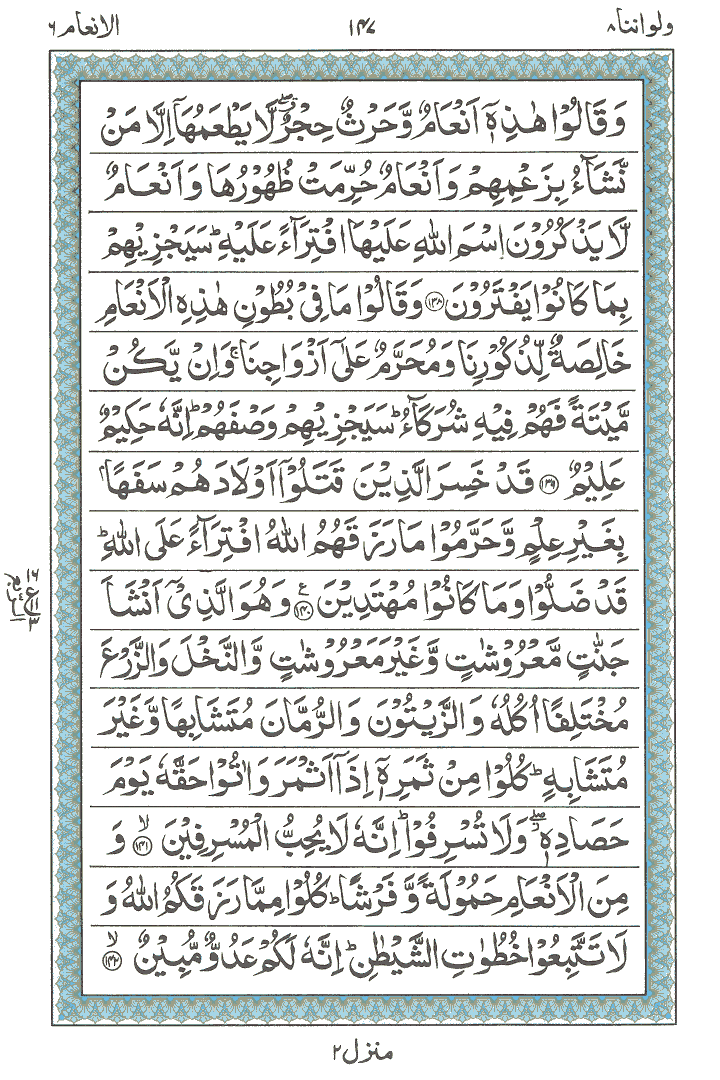 ولواننا ٨ ١٤٧ الانعام ٦
وَقَالُوْا هٰذِهٖۤ اَنْعَامٌ وَّحَرْثٌ حِجْرٌ ۖۗ لَّا يَطْعَمُهَاۤ اِلَّا مَنْ
نَّشَآءُ بِزَعْمِهِمْ وَاَنْعَامٌ حُرِّمَتْ ظُهُوْرُهَا وَاَنْعَامٌ
لَّا يَذْكُرُوْنَ اسْمَ اللّٰهِ عَلَيْهَا افْتِرَآءً عَلَيْهِ ؕ سَيَجْزِيْهِمْ
بِمَا كَانُوْا يَفْتَرُوْنَ ﴿١٣٨﴾ وَقَالُوْا مَا فِيْ بُطُوْنِ هٰذِهِ الْاَنْعَامِ
خَالِصَةٌ لِّذُكُوْرِنَا وَمُحَرَّمٌ عَلٰۤى اَزْوَاجِنَا ۚ وَاِنْ يَّكُنْ
مَّيْتَةً فَهُمْ فِيْهِ شُرَكَآءُ ؕ سَيَجْزِيْهِمْ وَصْفَهُمْ ؕ اِنَّهٗ حَكِيْمٌ
عَلِيْمٌ ﴿١٣٩﴾ قَدْ خَسِرَ الَّذِيْنَ قَتَلُوْۤا اَوْلَادَهُمْ سَفَهًاۢ
بِغَيْرِ عِلْمٍ وَّحَرَّمُوْا مَا رَزَقَهُمُ اللّٰهُ افْتِرَآءً عَلَى اللّٰهِ ؕ
قَدْ ضَلُّوْا وَمَا كَانُوْا مُهْتَدِيْنَ ﴿١٤٠﴾ ع وَهُوَ الَّذِيْۤ اَنْشَاَ
جَنّٰتٍ مَّعْرُوْشٰتٍ وَّغَيْرَ مَعْرُوْشٰتٍ وَّالنَّخْلَ وَالزَّرْعَ
مُخْتَلِفًا اُكُلُهٗ وَالزَّيْتُوْنَ وَالرُّمَّانَ مُتَشَابِهًا وَّغَيْرَ
مُتَشَابِهٍ ؕ كُلُوْا مِنْ ثَمَرِهٖۤ اِذَاۤ اَثْمَرَ وَاٰتُوْا حَقَّهٗ يَوْمَ
حَصَادِهٖ ۖؗ وَلَا تُسْرِفُوْا ؕ اِنَّهٗ لَا يُحِبُّ الْمُسْرِفِيْنَ ﴿١٤١﴾ۙ وَ
مِنَ الْاَنْعَامِ حَمُوْلَةً وَّفَرْشًا ؕ كُلُوْا مِمَّا رَزَقَكُمُ اللّٰهُ وَ
لَا تَتَّبِعُوْا خُطُوٰتِ الشَّيْطٰنِ ؕ اِنَّهٗ لَكُمْ عَدُوٌّ مُّبِيْنٌ ﴿١٤٢﴾ۙ
منزل ٢